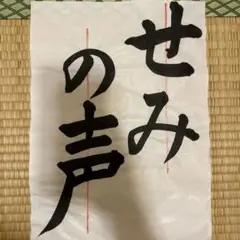 せみ
の声